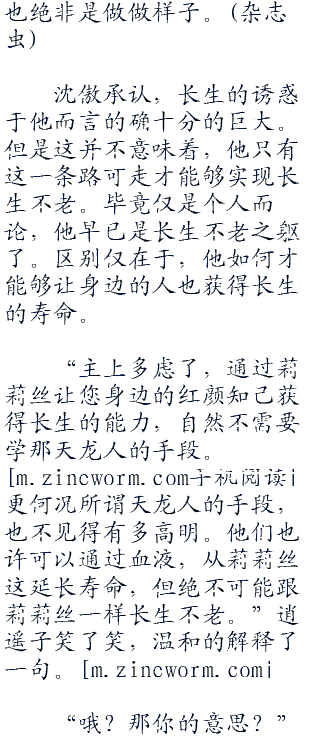 也绝非是做做样子。(杂志
虫)
沈傲承认，长生的诱惑
于他而言的确十分的巨大。
但是这并不意味着，他只有
这一条路可走才能够实现长
生不老。毕竟仅是个人而
论，他早已是长生不老之躯
了。区别仅在于，他如何才
能够让身边的人也获得长生
的寿命。
“主上多虑了，通过莉
莉丝让您身边的红颜知己获
得长生的能力，自然不需要
学那天龙人的手段。
[m.zincworm.com手机阅读|
更何况所谓天龙人的手段，
也不见得有多高明。他们也
许可以通过血液，从莉莉丝
这延长寿命，但绝不可能跟
莉莉丝一样长生不老。”逍
遥子笑了笑，温和的解释了
一句。[m.zincworm.com|
“哦？那你的意思？”